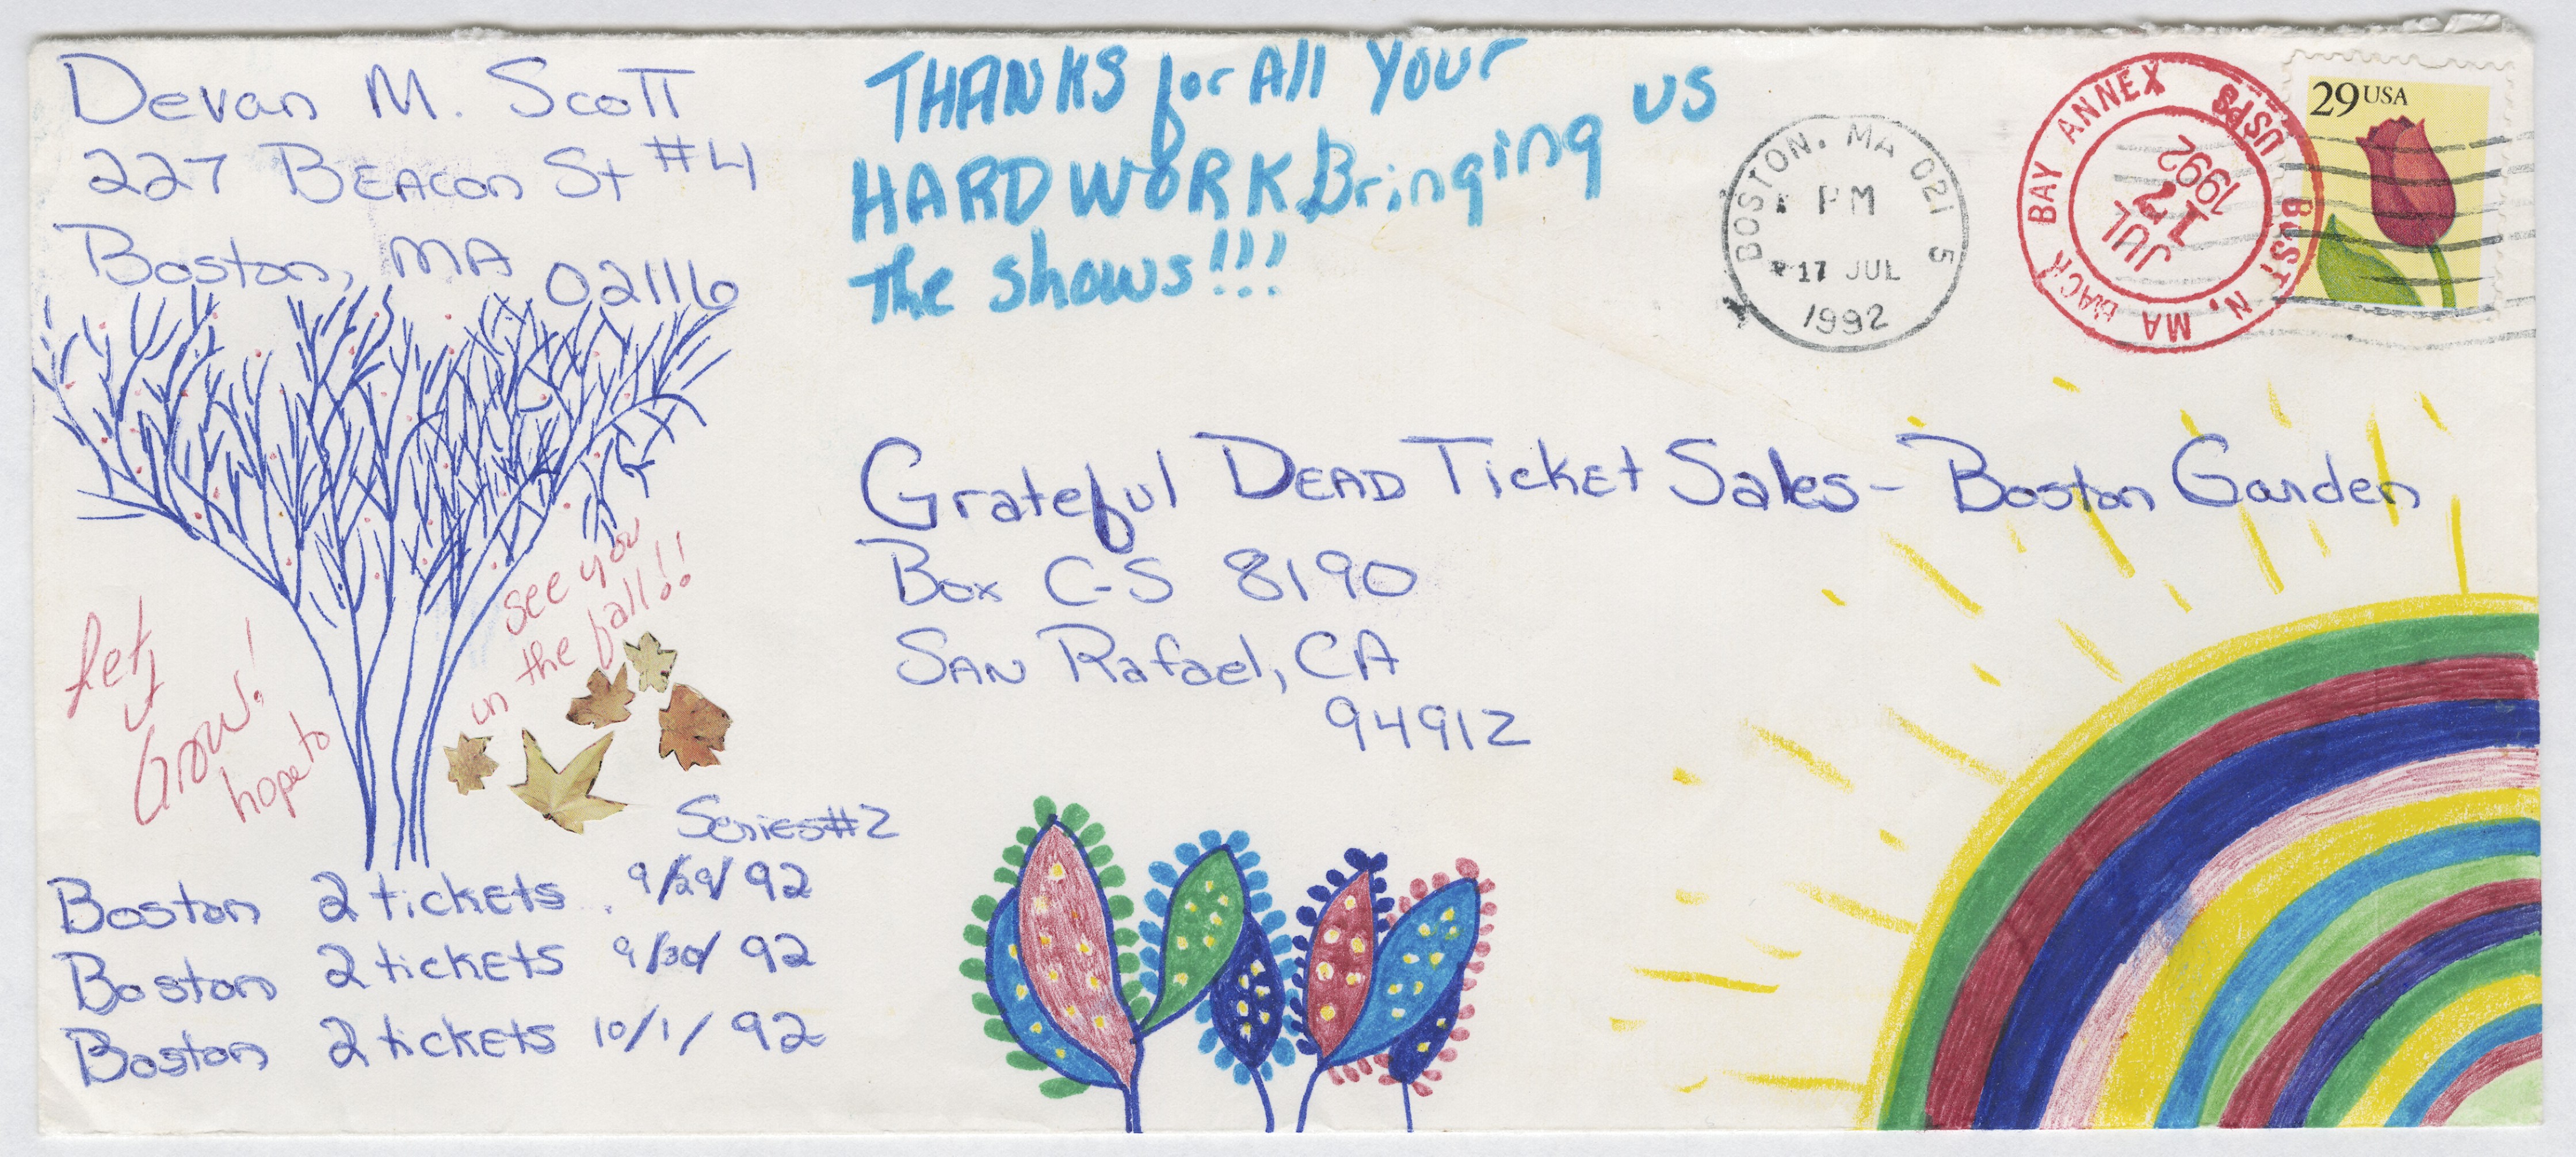 Devan M. Scott
227 Beacon St #4
Boston, MA 02116
THANKS for All Your
HARD WORK Bringing us
the shows!!!
BOSTON, MA 021 5
PM
17 JUL
1992
BACK BAY ANNEX
USPS
BOST N, MA
JUL
17
1992
29 USA
Grateful DEAD TickEt Sales - Boston Garden
Box C-S 8190
SAN Rafael, CA
94912
Let
it
Grow!
hope to
see you
in the fall!!
Series #2
Boston 2 tickets 9/29/92
Boston 2 tickets 9/30/92
Boston 2 tickets 10/1/92